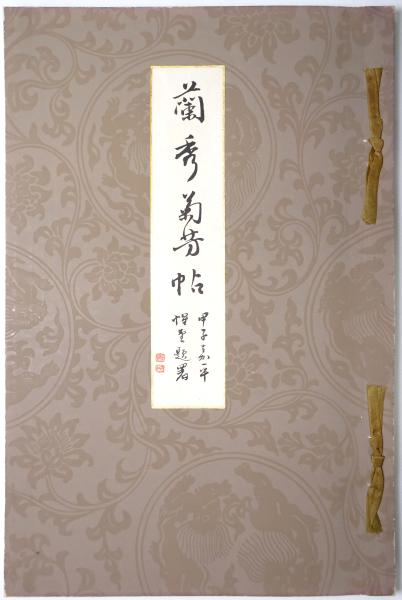 蘭秀菊芳帖
甲子嘉平
惺堂題署